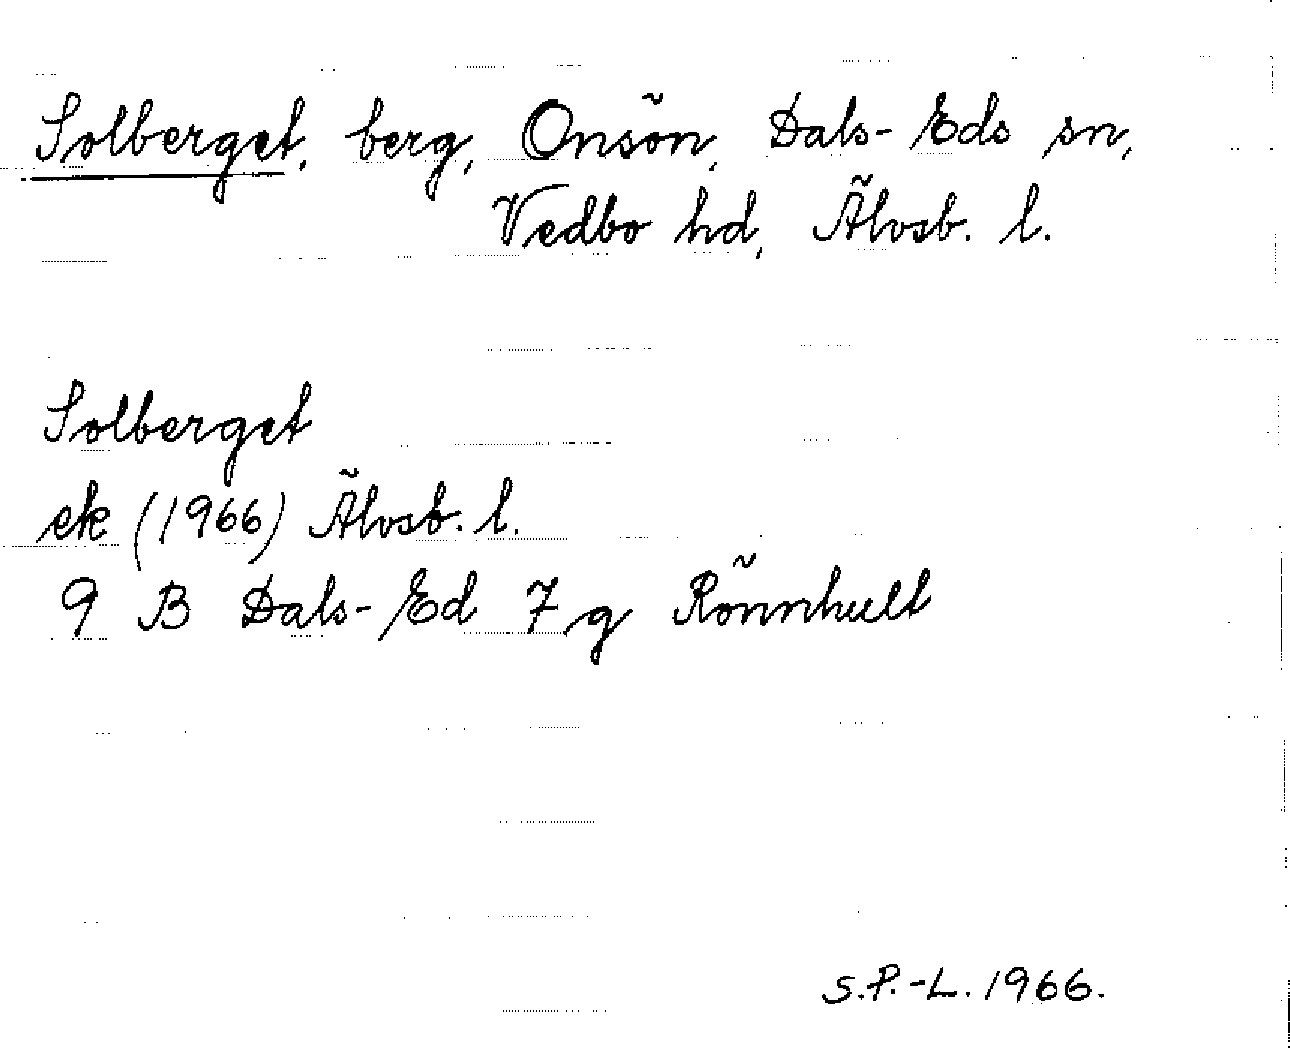 Solberget, berg, Onsön, Dals-Eds sn,
Vedbo hd, Älvsb. l.
Solberget
ek (1966) Älvsb. l.
9 B Dals-Ed 7 g Rönnhult
S.P.-L. 1966.